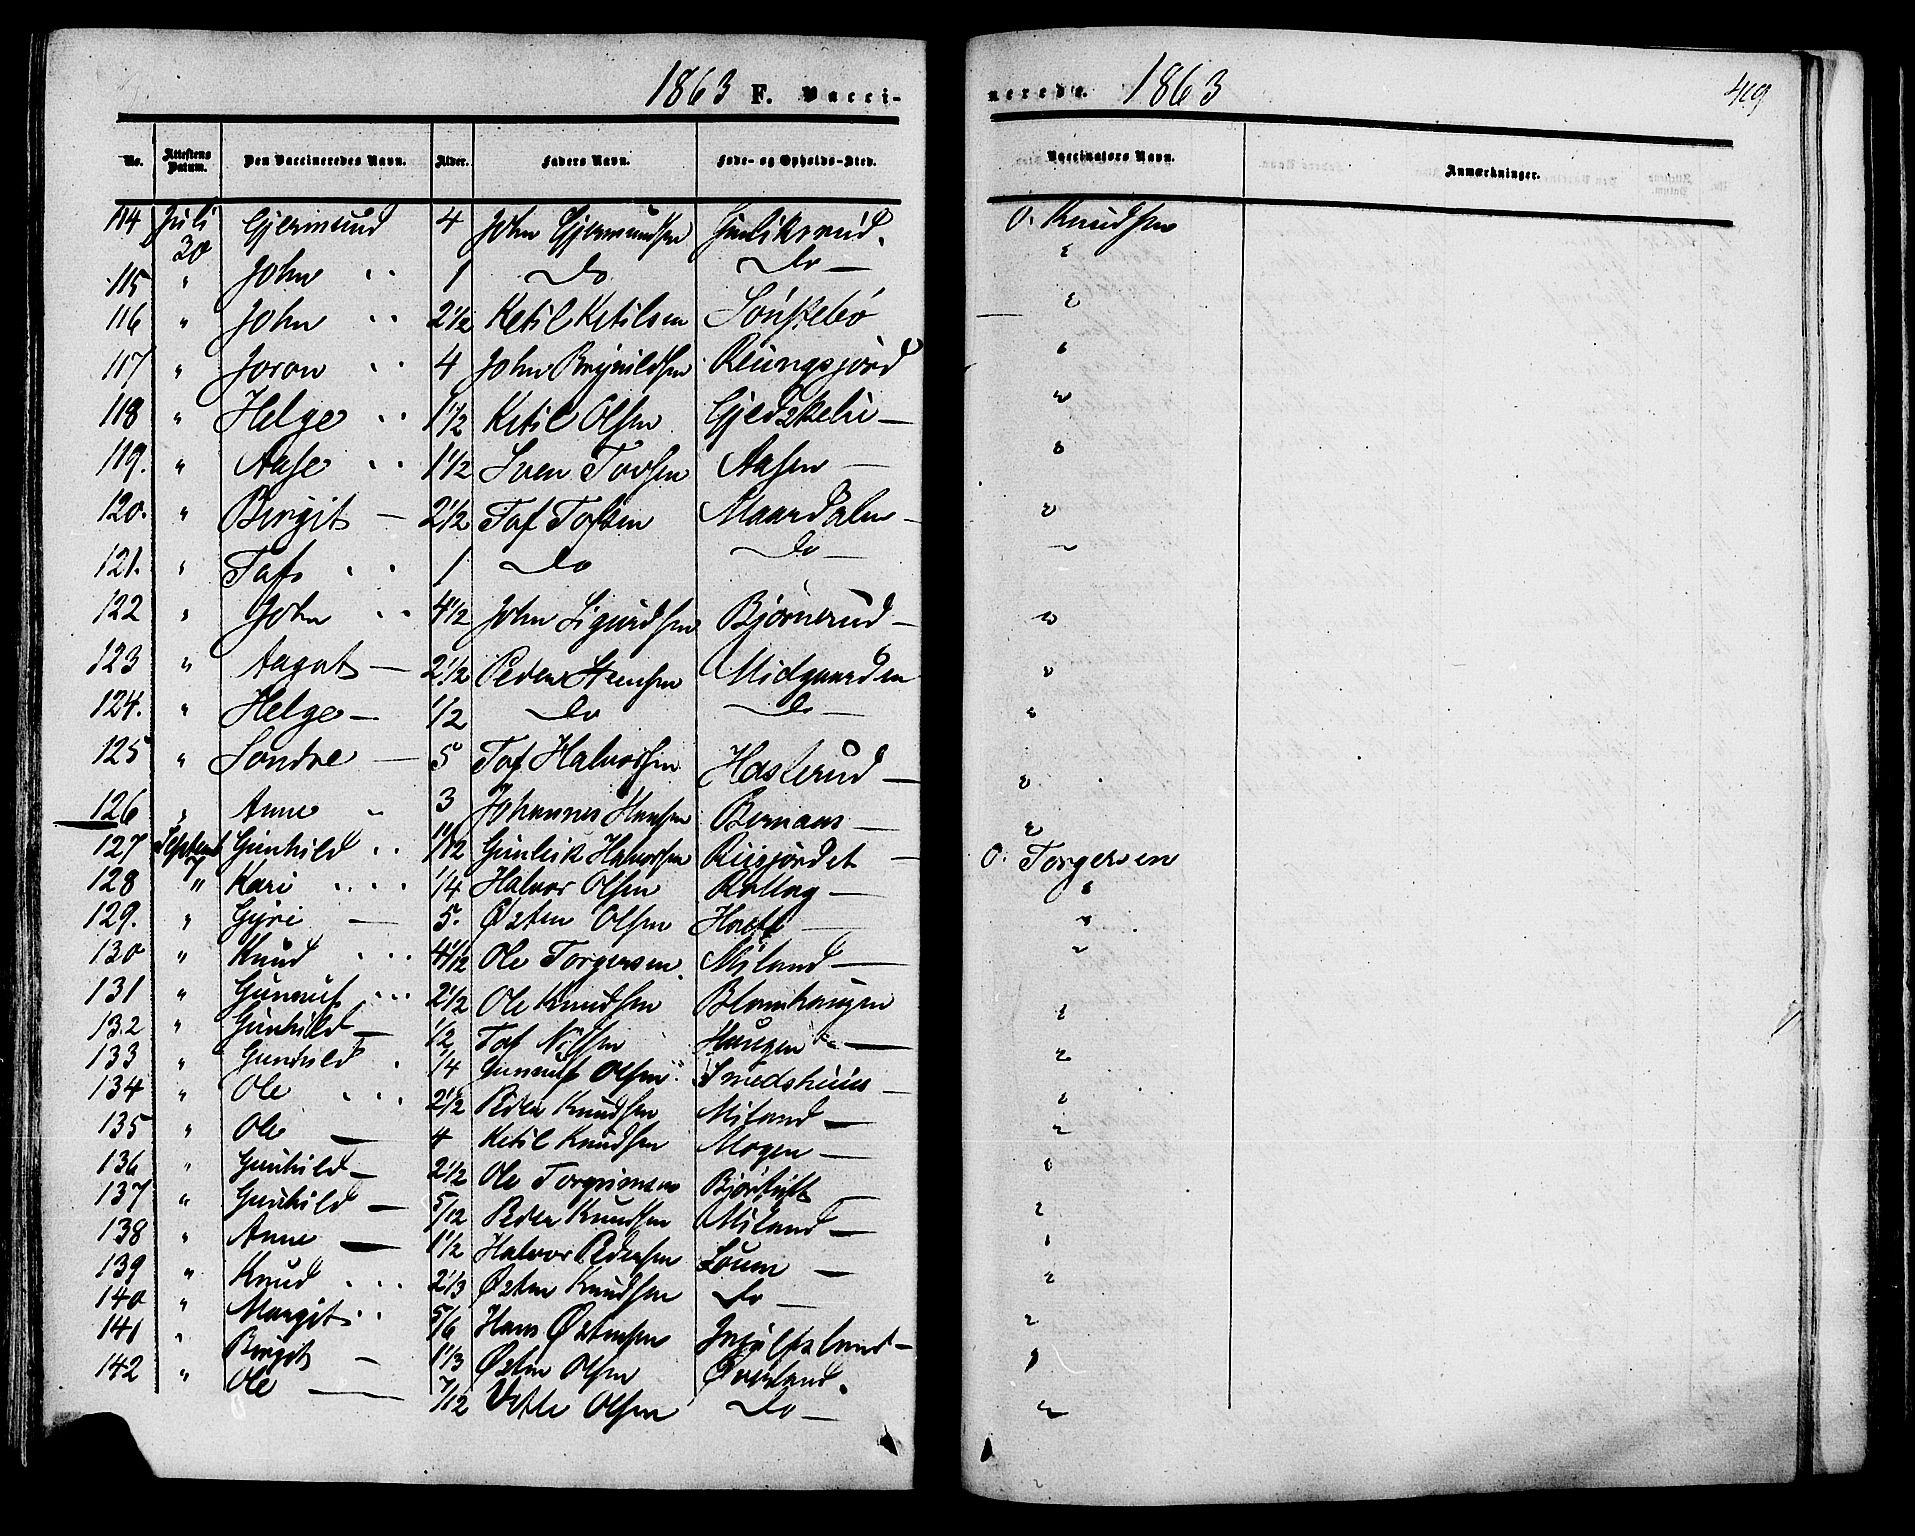 1863 F. Vacci-
nerede. 1863
419
No. Attestens Datum. Den Vaccineredes Navn. Alder. Faders Navn. Føde- og Opholds-Sted. Vaccinators Navn. Anmærkninger.
114 Juli 30 Gjermund 4 John Gjermundsen O. Knudsen
115 " John 1 Do Do —
116 " John 2 1/2 Ketil Ketilsen
117 " Joron 4 John Brynildsen
118 " Helge 1 1/2 Ketil Olsen —
119. " Aase 1 1/2 Sven Tovsen Aasen —
120. " Birgit — 2 1/2 Taf Tofsen Maardalen —
121. " Taf 1 Do Do —
122 " John 4 1/2 John Sigurdsen Bjørnerud —
123 " Aagot — 2 1/2 Peder Steensen Midgaarden
124. " Helge — 1/2 Do Do —
125 " Sondre — 5 Taf Halvorsen Hasterud —
126 " Anne 3 Johannes Hansen Bernaas —
127 Septemb 7 Gunhild 11/12 Gunleik Halvorsen Reisjordet — O. Torgersen
128 " Kari 1/4 Halvor Olsen Rollag —
129. " Gyri — 5. Østen Olsen —
130 " Knud Ole Torgersen Miland —
131 " Gunnuf 2 1/2 Ole Knudsen
132 " Gunhild — 1/2 Taf Nilsen Haugen —
133 " Gunhild 1/4 Gunnuf Olsen Smedshuus —
134 " Ole 2 1/2 Peder Knudsen Miland —
135 " Ole — 4 Ketil Knudsen Mogen —
136 " Gunhild — 2 1/2 Ole Torgrimsen —
137 " Gunhild — 5/12 Peder Knudsen Miland —
138 " Anne — 1 1/2 Halvor Pedersen —
139 " Knud 2 1/3 Østen Knudsen Do —
140 " Margit 5/6 Hans Østensen Ingulfsland —
141 " Birgit — 1 1/3 Østen Olsen Øverland.
142 " Ole — 7/12 Vetle Olsen Do —